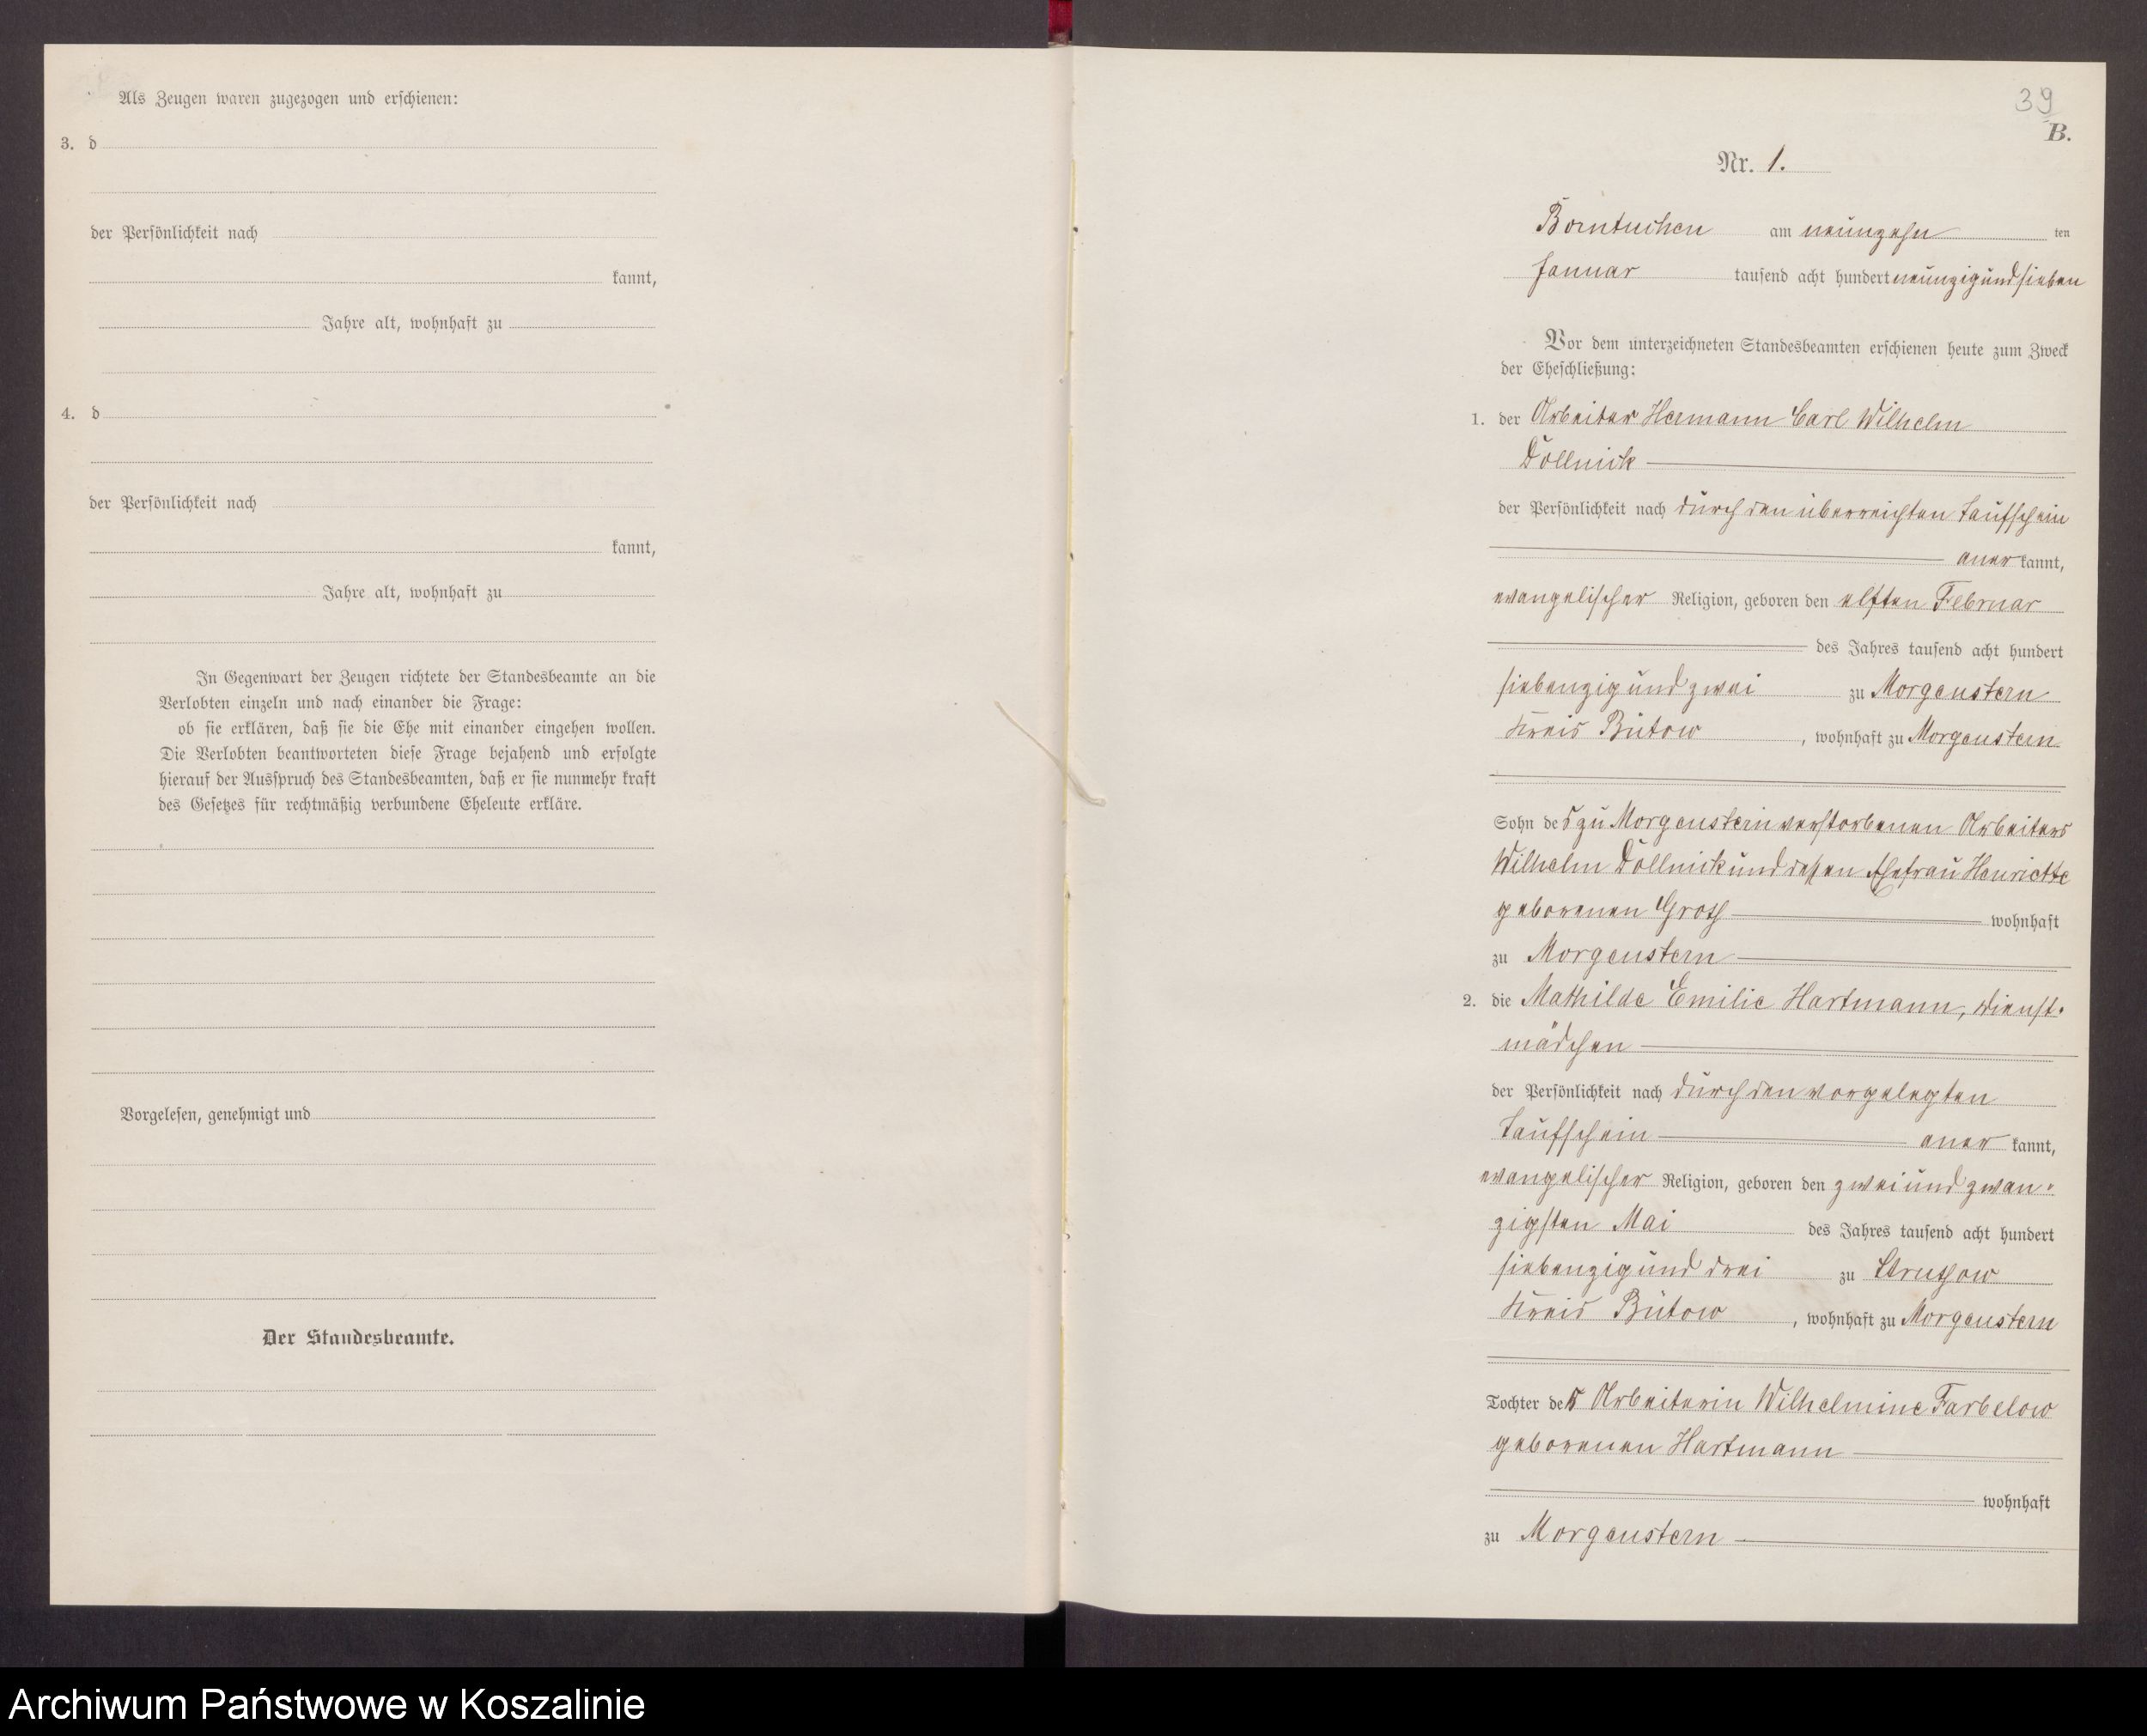 Als Zeugen waren zugezogen und erschienen:
3. d
der Persönlichkeit nach
kannt,
Jahre alt, wohnhaft zu
4. d
der Persönlichkeit nach
kannt,
Jahre alt, wohnhaft zu
In Gegenwart der Zeugen richtete der Standesbeamte an die
Verlobten einzeln und nach einander die Frage:
ob sie erklären, daß sie die Ehe mit einander eingehen wollen.
Die Verlobten beantworteten diese Frage bejahend und erfolgte
hierauf der Ausspruch des Standesbeamten, daß er sie nunmehr kraft
des Gesetzes für rechtmäßig verbundene Eheleute erkläre.
Vorgelesen, genehmigt und
Der Standesbeamte.
39
B.
Nr. 1.
Borntuchen am neunzehn ten
Januar tausend acht hundert neunzig und sieben
Vor dem unterzeichneten Standesbeamten erschienen heute zum Zweck
der Eheschließung:
1. der Arbeiter Hermann Carl Wilhelm
Döllnick
der Persönlichkeit nach durch den überreichten Taufschein
aner kannt,
evangelischer Religion, geboren den elften Februar
des Jahres tausend acht hundert
siebenzig und zwei zu Morgenstern
Kreis Bütow, wohnhaft zu Morgenstern
Sohn des zu Morgenstern verstorbenen Arbeiters
Wilhelm Döllnick und dessen Ehefrau Henriette
geborenen Groth wohnhaft
zu Morgenstern
2. die Mathilde Emilie Hartmann, Dienst-
mädchen
der Persönlichkeit nach durch den vorgelegten
Taufschein aner kannt,
evangelischer Religion, geboren den zwei und zwan-
zigsten Mai des Jahres tausend acht hundert
siebenzig und drei zu Struthow
Kreis Bütow, wohnhaft zu Morgenstern
Tochter der Arbeiterin Wilhelmine Farbelow
geborenen Hartmann
wohnhaft
zu Morgenstern
Archiwum Państwowe w Koszalinie